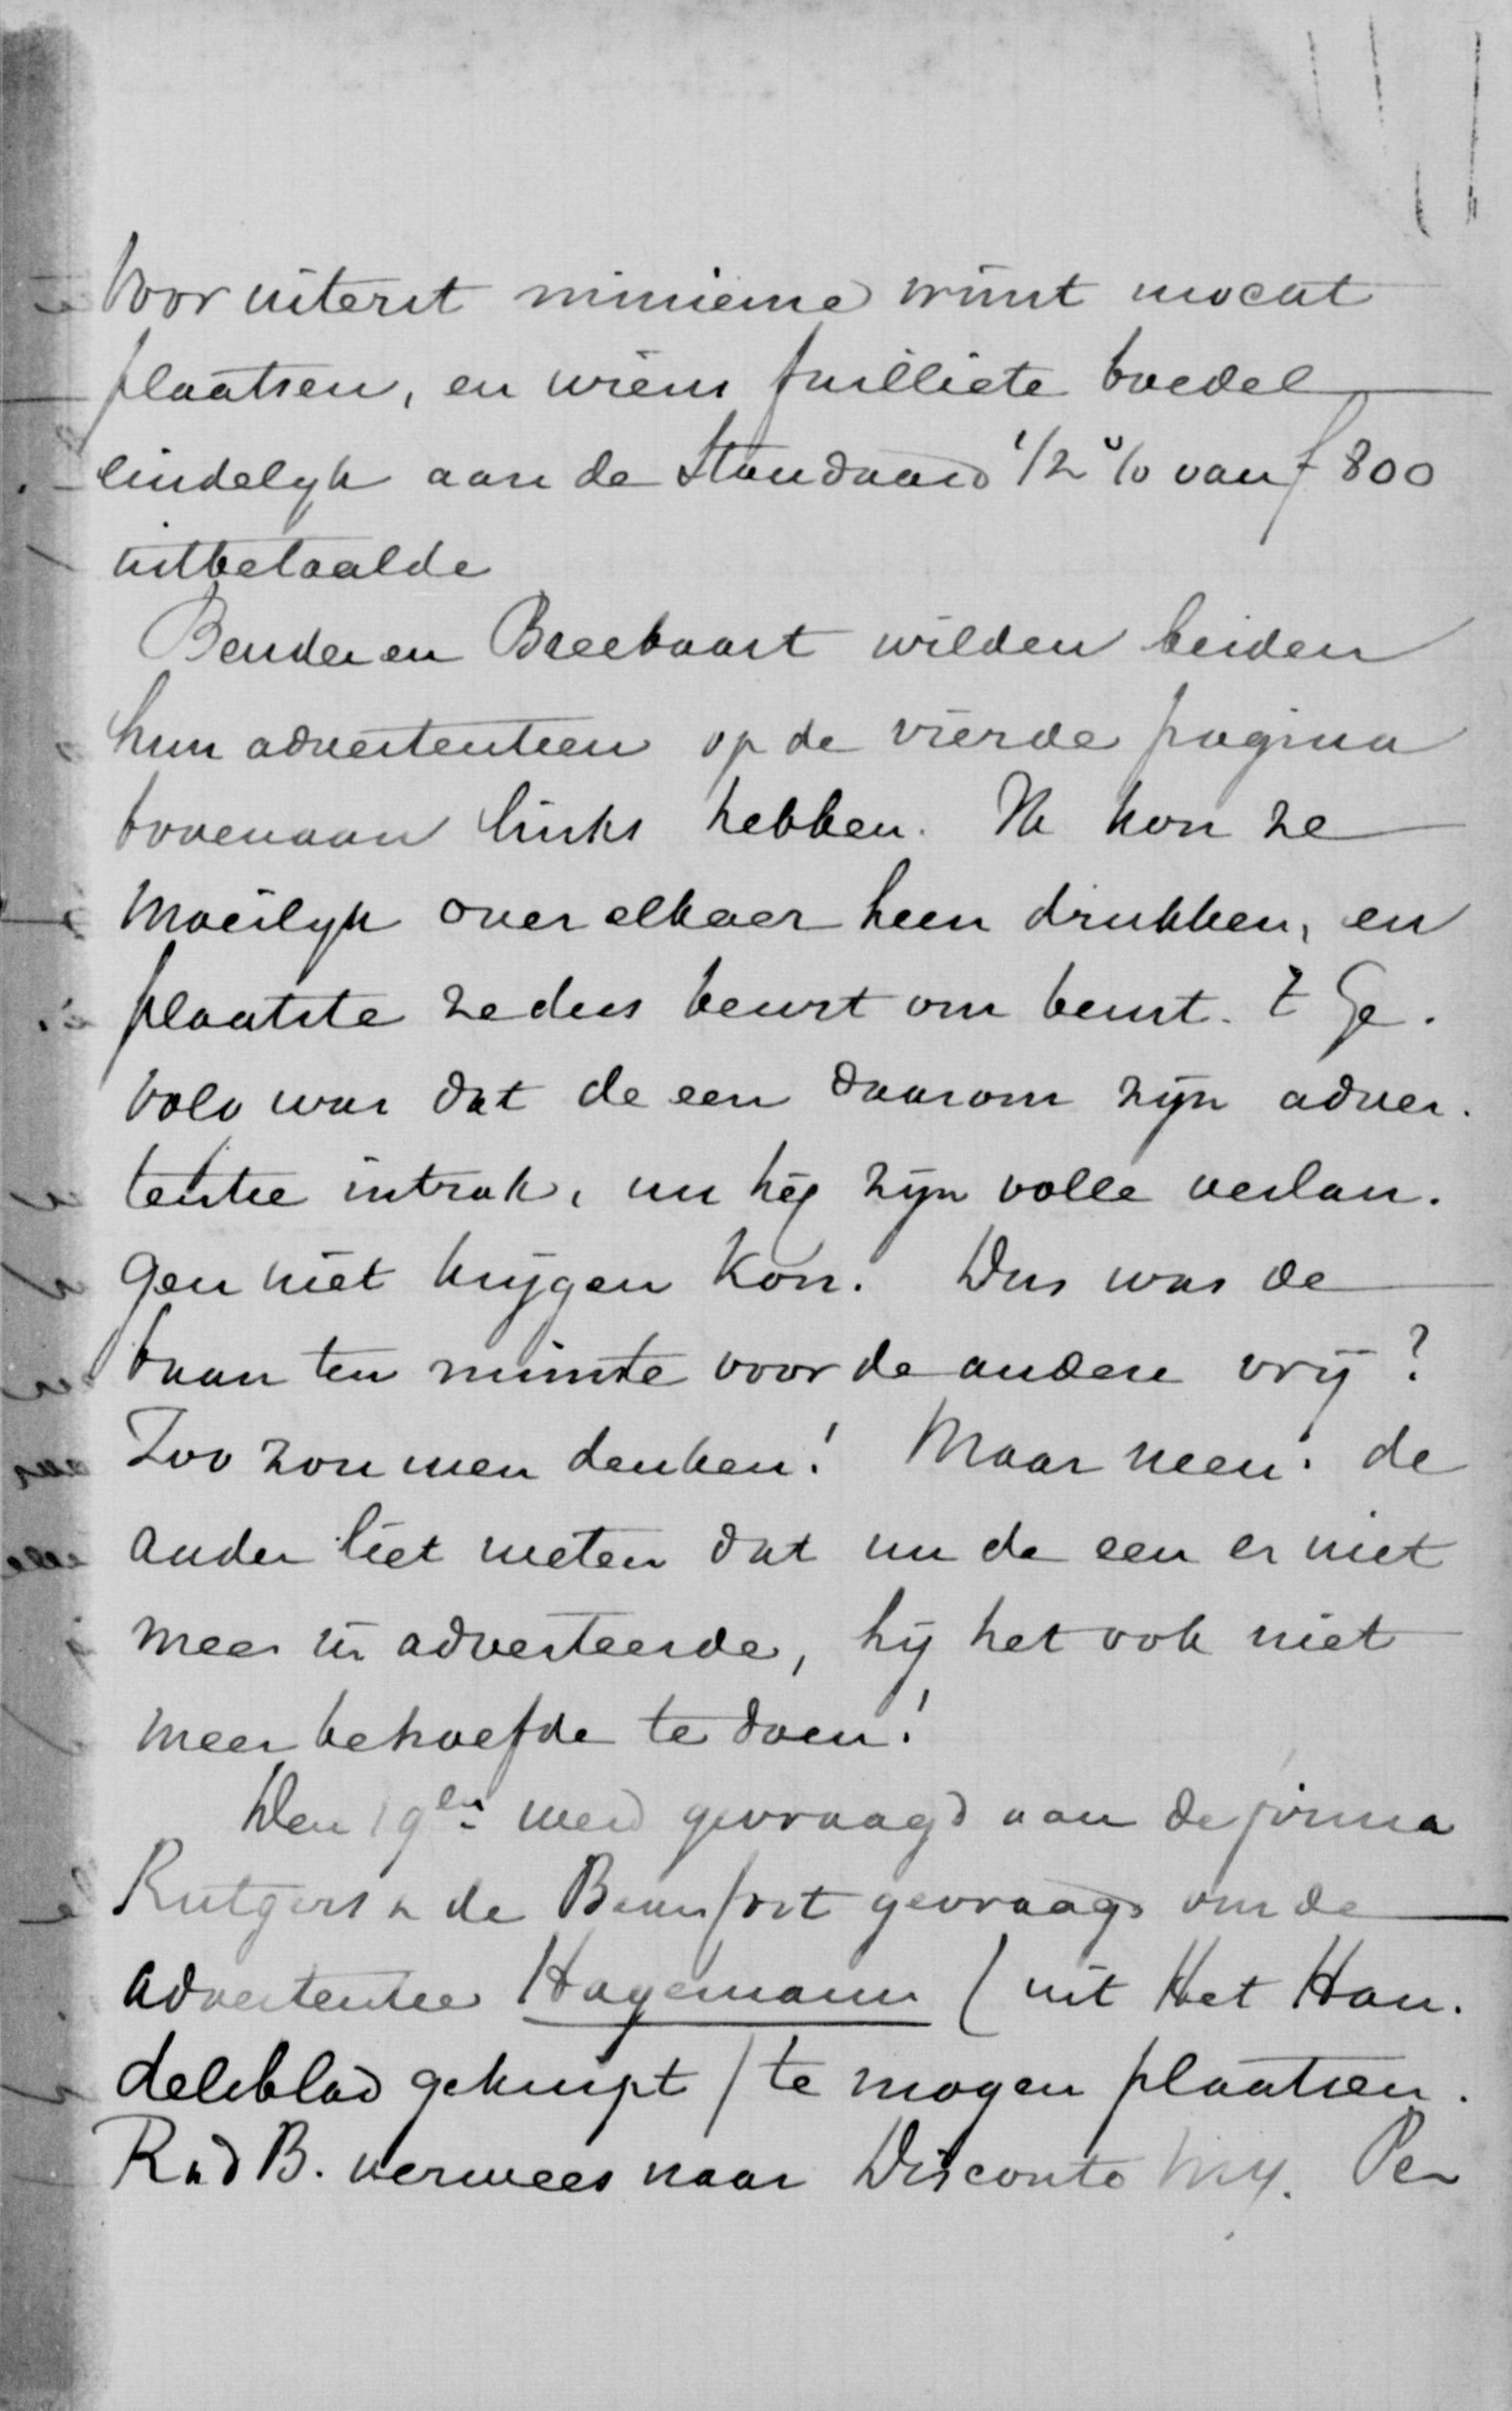 voor uiterst minieme winst moest
plaatsen, en wiens failliete boedel
eindelyk aan de Standaard 1/2 % van f 800
uitbetaalde
Bender en Breebaart wilden beiden
hun advertentieen op de vierde pagina
bovenaan links hebben. Ik kon ze
moeilyk over elkaer heen drukken, en
plaatste ze dus beurt om beurt. 't Ge.
volg was dat de een daarom zijn adver.
tentie introk, nu hij zijn volle verlan.
gen niet krijgen kon. Dus was de
baan ten minste voor de andere vrij?
Zoo zou men denken! Maar neen: de
ander liet weten dat nu de een er niet
meer in adverteerde, hij het ook niet
meer behoefde te doen!
Den 19en werd gevraagd aan de firma
Rutgers & de Beaufort gevraagd om de
advertentie Hagemann (uit Het Han.
delsblad geknipt) te mogen plaatsen.
R & d B. verwees naar Disconto My. Per